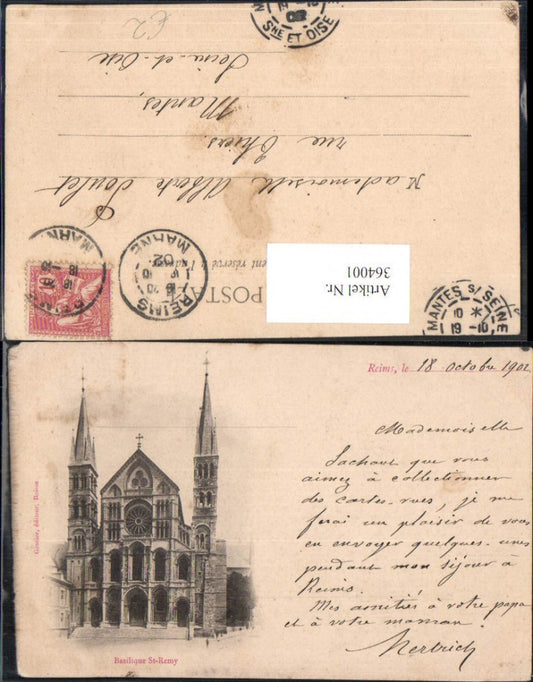 £2
SNE ET OISE
02
Seine-et-Oise
Mantes,
rue Thiers
Mademoiselle Alberte Poulet
MARNE
REIMS
MARNE
02
REIMS
POSTA
Artikel Nr.
364001
MANTES S/ SEINE
19-10
Reims, le 18 octobre 1902
Mademoiselle
Sachant que vous
aimez à collectionner
des cartes-vues, je me
ferai un plaisir de vous
en envoyer quelques-unes
pendant mon séjour à
Reims.
Mes amitiés à votre papa
et à votre maman.
Mertrich
éditeur, Reims
Basilique St-Remy